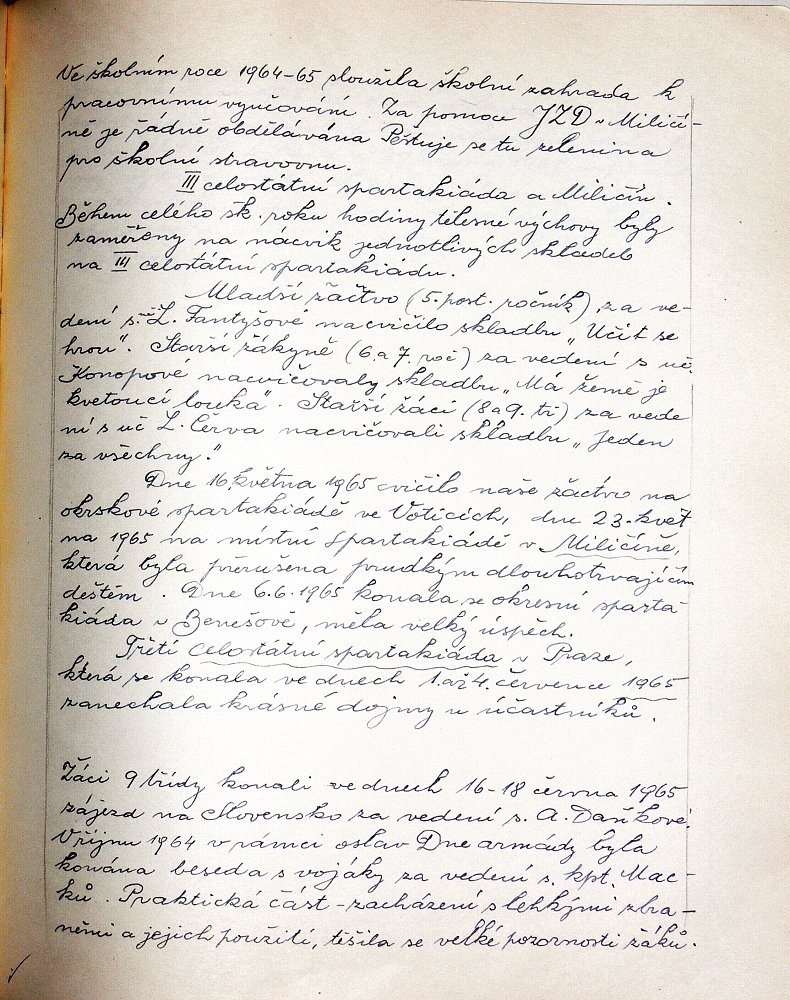 Ve školním roce 1964-65 sloužila školní zahrada k
pracovnímu vyučování. Za pomoce JZD v Miličí-
ně je řádně obdělávána Pěstuje se tu zelenina
pro školní stravovnu.
III celostátní spartakiáda a Miličín.
Během celého šk. roku hodiny tělesné výchovy byly
zaměřeny na nácvik jednotlivých skladeb
na III celostátní spartakiádu.
Mladší žactvo (5. post. ročník), za ve-
dení s. Ž. Fantyšové nacvičilo skladbu „Učit se
hrou". Starší žákyně (6. a 7. roč) za vedení s uč.
Konopové nacvičovaly skladbu „Má země je
kvetoucí louka". Starší žáci (8 a 9. tř) za vede
ní s uč L. Červa nacvičovali skladbu „Jeden
za všechny."
Dne 16. května 1965 cvičilo naše žactvo na
okrskové spartakiádě ve Voticích, dne 23. květ
na 1965 na místní spartakiádě v Miličíně,
která byla přerušena prudkým dlouhotrvajícím
deštěm. Dne 6.6.1965 konala se okresní sparta
kiáda v Benešově, měla velký úspěch.
Třetí celostátní spartakiáda v Praze,
která se konala ve dnech 1. až 4. července 1965
zanechala krásné dojmy u účastníků.
Žáci 9 třídy konali ve dnech 16-18 června 1965
zájezd na Slovensko za vedení s. A. Daňkové.
V říjnu 1964 v rámci oslav Dne armády byla
konána beseda s vojáky za vedení s. kpt. Mac-
ků. Praktická část - zacházení s lehkými zbra-
němi a jejich použití, těšila se velké pozornosti žáků.